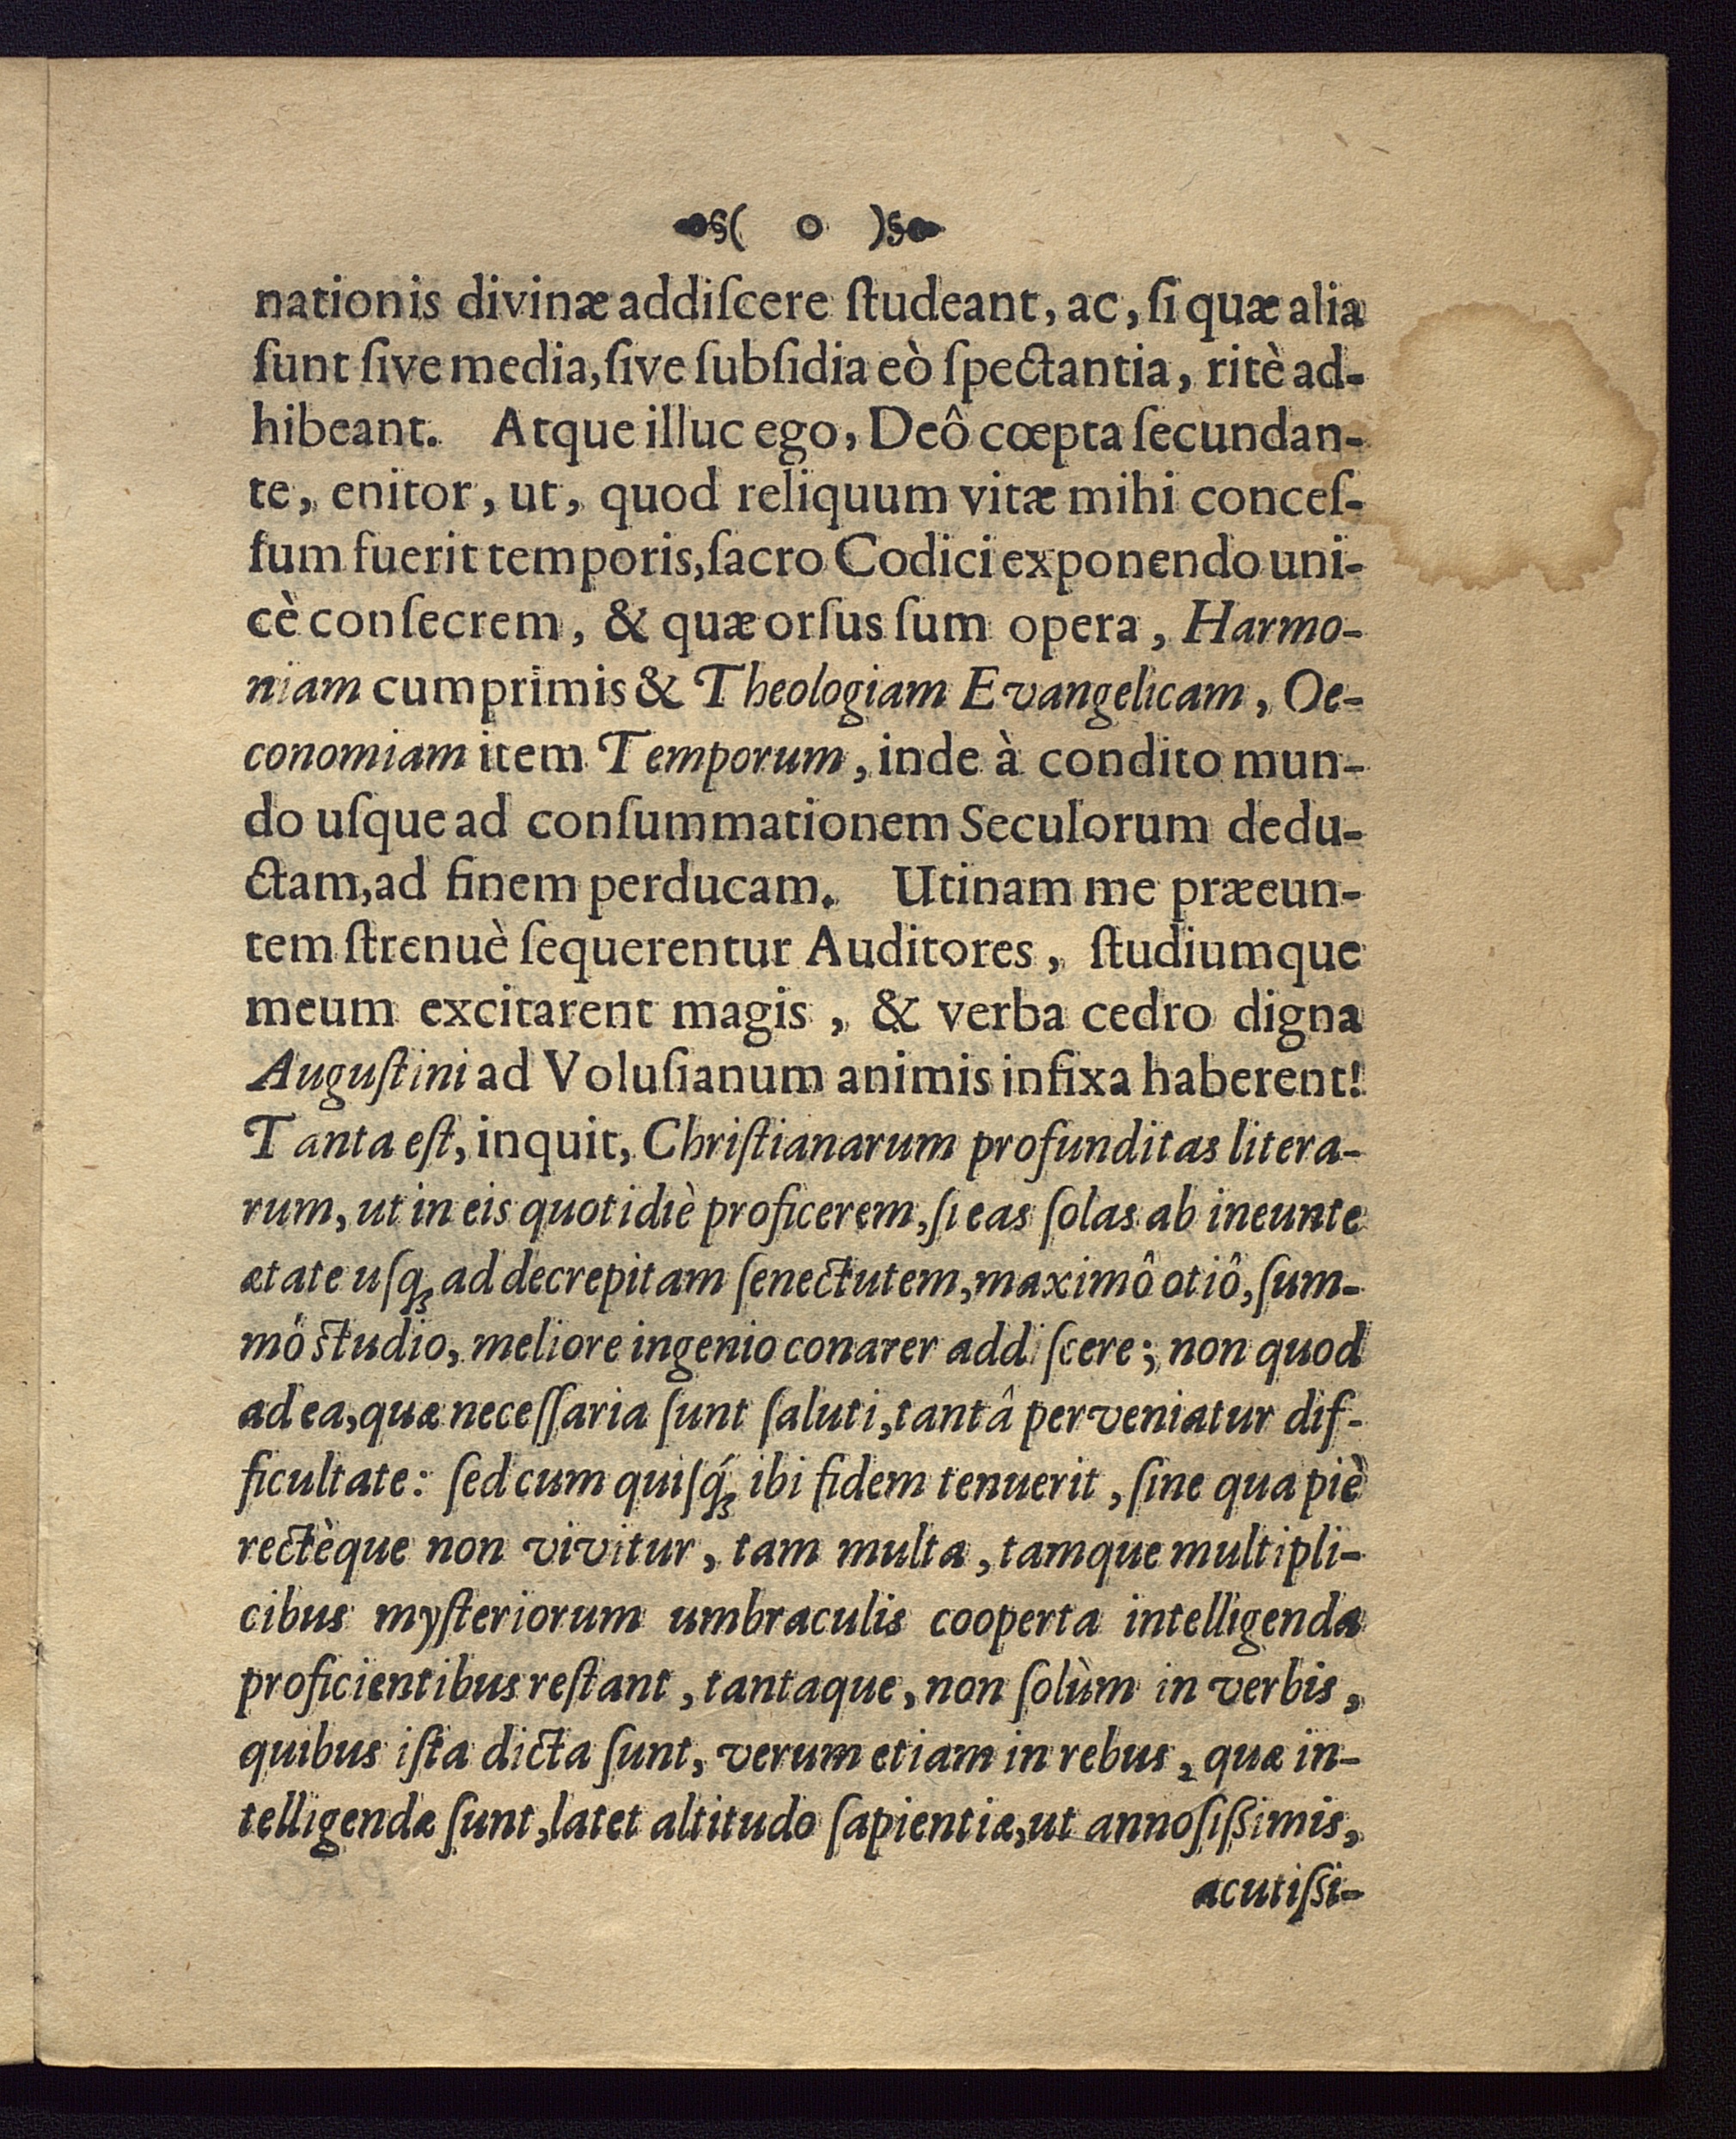 §( o )§
nationis divinæ addiſcere ſtudeant, ac, ſi quæ alia
ſunt ſive media, ſive ſubſidia eò ſpectantia, ritè ad-
hibeant. Atque illuc ego, Deô cœpta ſecundan-
te, enitor, ut, quod reliquum vitæ mihi conceſ-
ſum fuerit temporis, ſacro Codici exponendo uni-
cè conſecrem, & quæ orſus ſum opera, Harmo-
niam cumprimis & Theologiam Evangelicam, Oe-
conomiam item Temporum, inde à condito mun-
do uſque ad conſummationem Seculorum dedu-
ctam, ad finem perducam. Utinam me præeun-
tem ſtrenuè ſequerentur Auditores, ſtudiumque
meum excitarent magis, & verba cedro digna
Auguſtini ad Voluſianum animis infixa haberent!
Tanta eſt, inquit, Chriſtianarum profunditas litera-
rum, ut in eis quotidiè proficerem, ſi eas ſolas ab ineunte
ætate uſq; ad decrepitam ſenectutem, maximô otiô, ſum-
mô ſtudio, meliore ingenio conarer addiſcere; non quod
ad ea, quæ neceſſaria ſunt ſaluti, tantâ perveniatur dif-
ficultate: ſed cum quiſq́; ibi fidem tenuerit, ſine qua piè
rectèque non vivitur, tam multa, tamque multipli-
cibus myſteriorum umbraculis cooperta intelligenda
proficientibus reſtant, tantaque, non ſolùm in verbis,
quibus iſta dicta ſunt, verum etiam in rebus, quæ in-
telligendæ ſunt, latet altitudo ſapientiæ, ut annoſiſſimis,
acutiſſi-